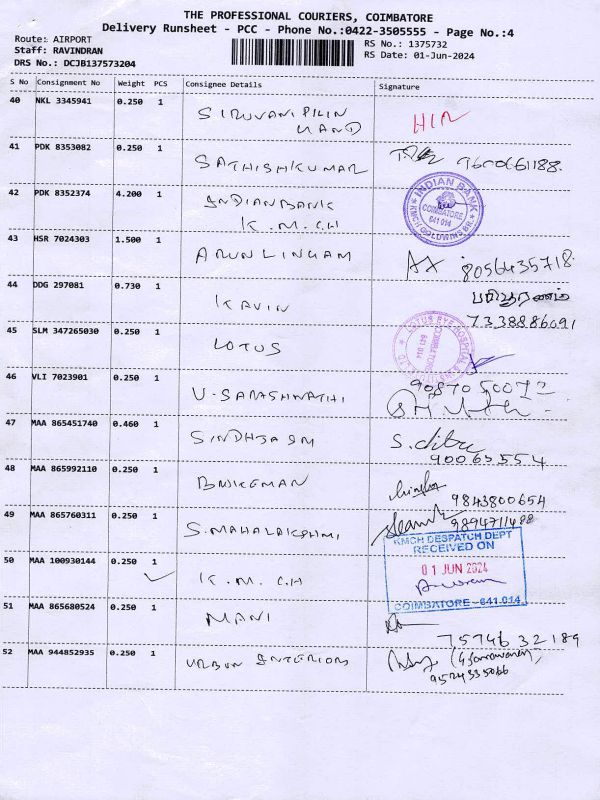 THE PROFESSIONAL COURIERS, COIMBATORE
Delivery Runsheet - PCC - Phone No.:0422-3505555 - Page No.:4
Route: AIRPORT
RS No.: 1375732
Staff: RAVINDRAN
RS Date: 01-Jun-2024
DRS No.: DCJB137573204
S No Consignment No Weight PCS Consignee Details Signature
40 NKL 3345941 0.250 1 SIRUVANI PILIN
HAND
41 PDK 8353082 0.250 1 SATHISHKUMAR 9600661188.
42 PDK 8352374 4.200 1 INDIAN BANK
K.M.C.H
INDIAN BANK
COIMBATORE
641 014
KMCH GOLDWINS BR.
43 HSR 7024303 1.500 1 ARUN LINGAM 8056435718.
44 DDG 297081 0.730 1 KAVIN
7338886091
45 SLM 347265030 0.250 1 LOTUS
LOTUS EYE HOSPITAL
COIMBATORE
641 014
46 VLI 7023901 0.250 1 V. SARASHWATHI
47 MAA 865451740 0.460 1 SINDHJASM
9006S554
48 MAA 865992110 0.250 1
9843800654
49 MAA 865760311 0.250 1 S. MAHALAKSHMI 9894711488
50 MAA 100930144 0.250 1 K.M.C.H
KMCH DESPATCH DEPT
RECEIVED ON
01 JUN 2024
COIMBATORE-641 014.
51 MAA 865680524 0.250 1 MANI
7574632189
52 MAA 944852935 0.250 1 URBUN INTERIORS
9524335066